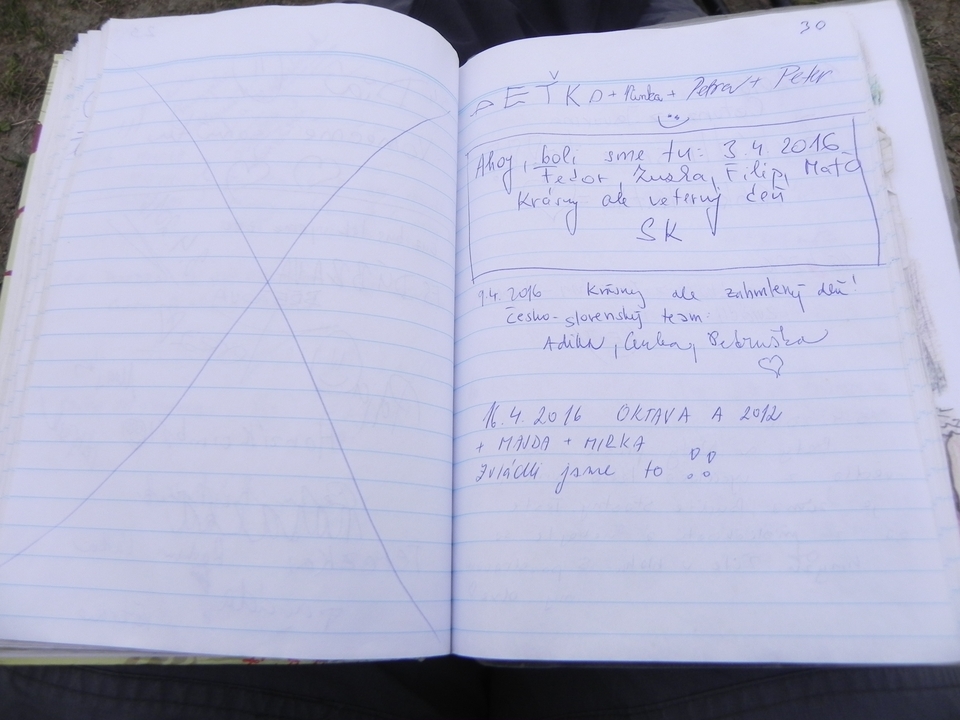 30
DEŤKO + Punka + Petra + Peter
Ahoj, boli sme tu: 3.4.2016
Fedor, Zuzka, Filip, Maťo
Krásny ale veterný deň
SK
9.4.2016 Krásny ale zahmlený deň!
Česko-slovenský team:
Petruška
16.4.2016 OKTAVA A 2012
+ MAJDA + MIRKA
Zvládli jsme to !!